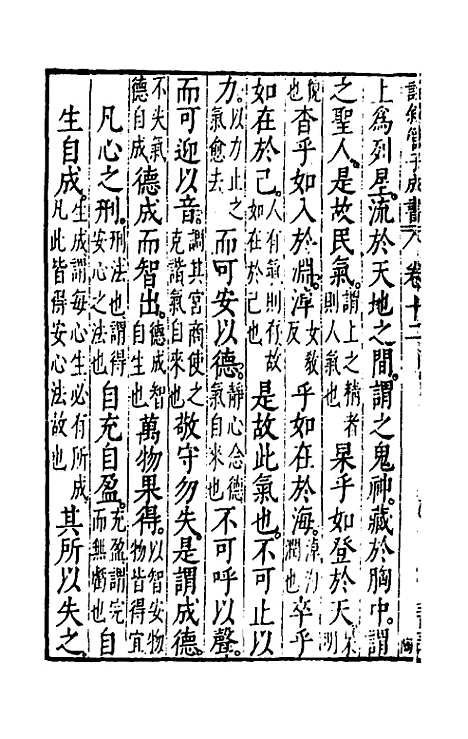 管子成書 卷十二
上爲列星。流於天地之間。謂之鬼神。藏於胸中。謂
之聖人。是故民氣。謂上之精者則人氣也杲乎如登於天杲明
貌也杳乎如入於淵。淖女教反乎如在於海。淖潤也卒乎
如在於己。人有氣則有故如在於己也是故此氣也。不可止以
力。以力止之氣愈去而可安以德。靜心念德氣自來也不可呼以聲。
而可迎以音。調其宮商使之克諧氣自來也敬守勿失。是謂成德。
不失氣德自成德成而智出。德成智自生也萬物果得。以智安物物皆得宜
凡心之刑。刑法也謂得安心之法也自充自盈。充盈謂完而無虧也自
生自成。生成謂每心生必有所成。凡此皆得安心法故也其所以失之